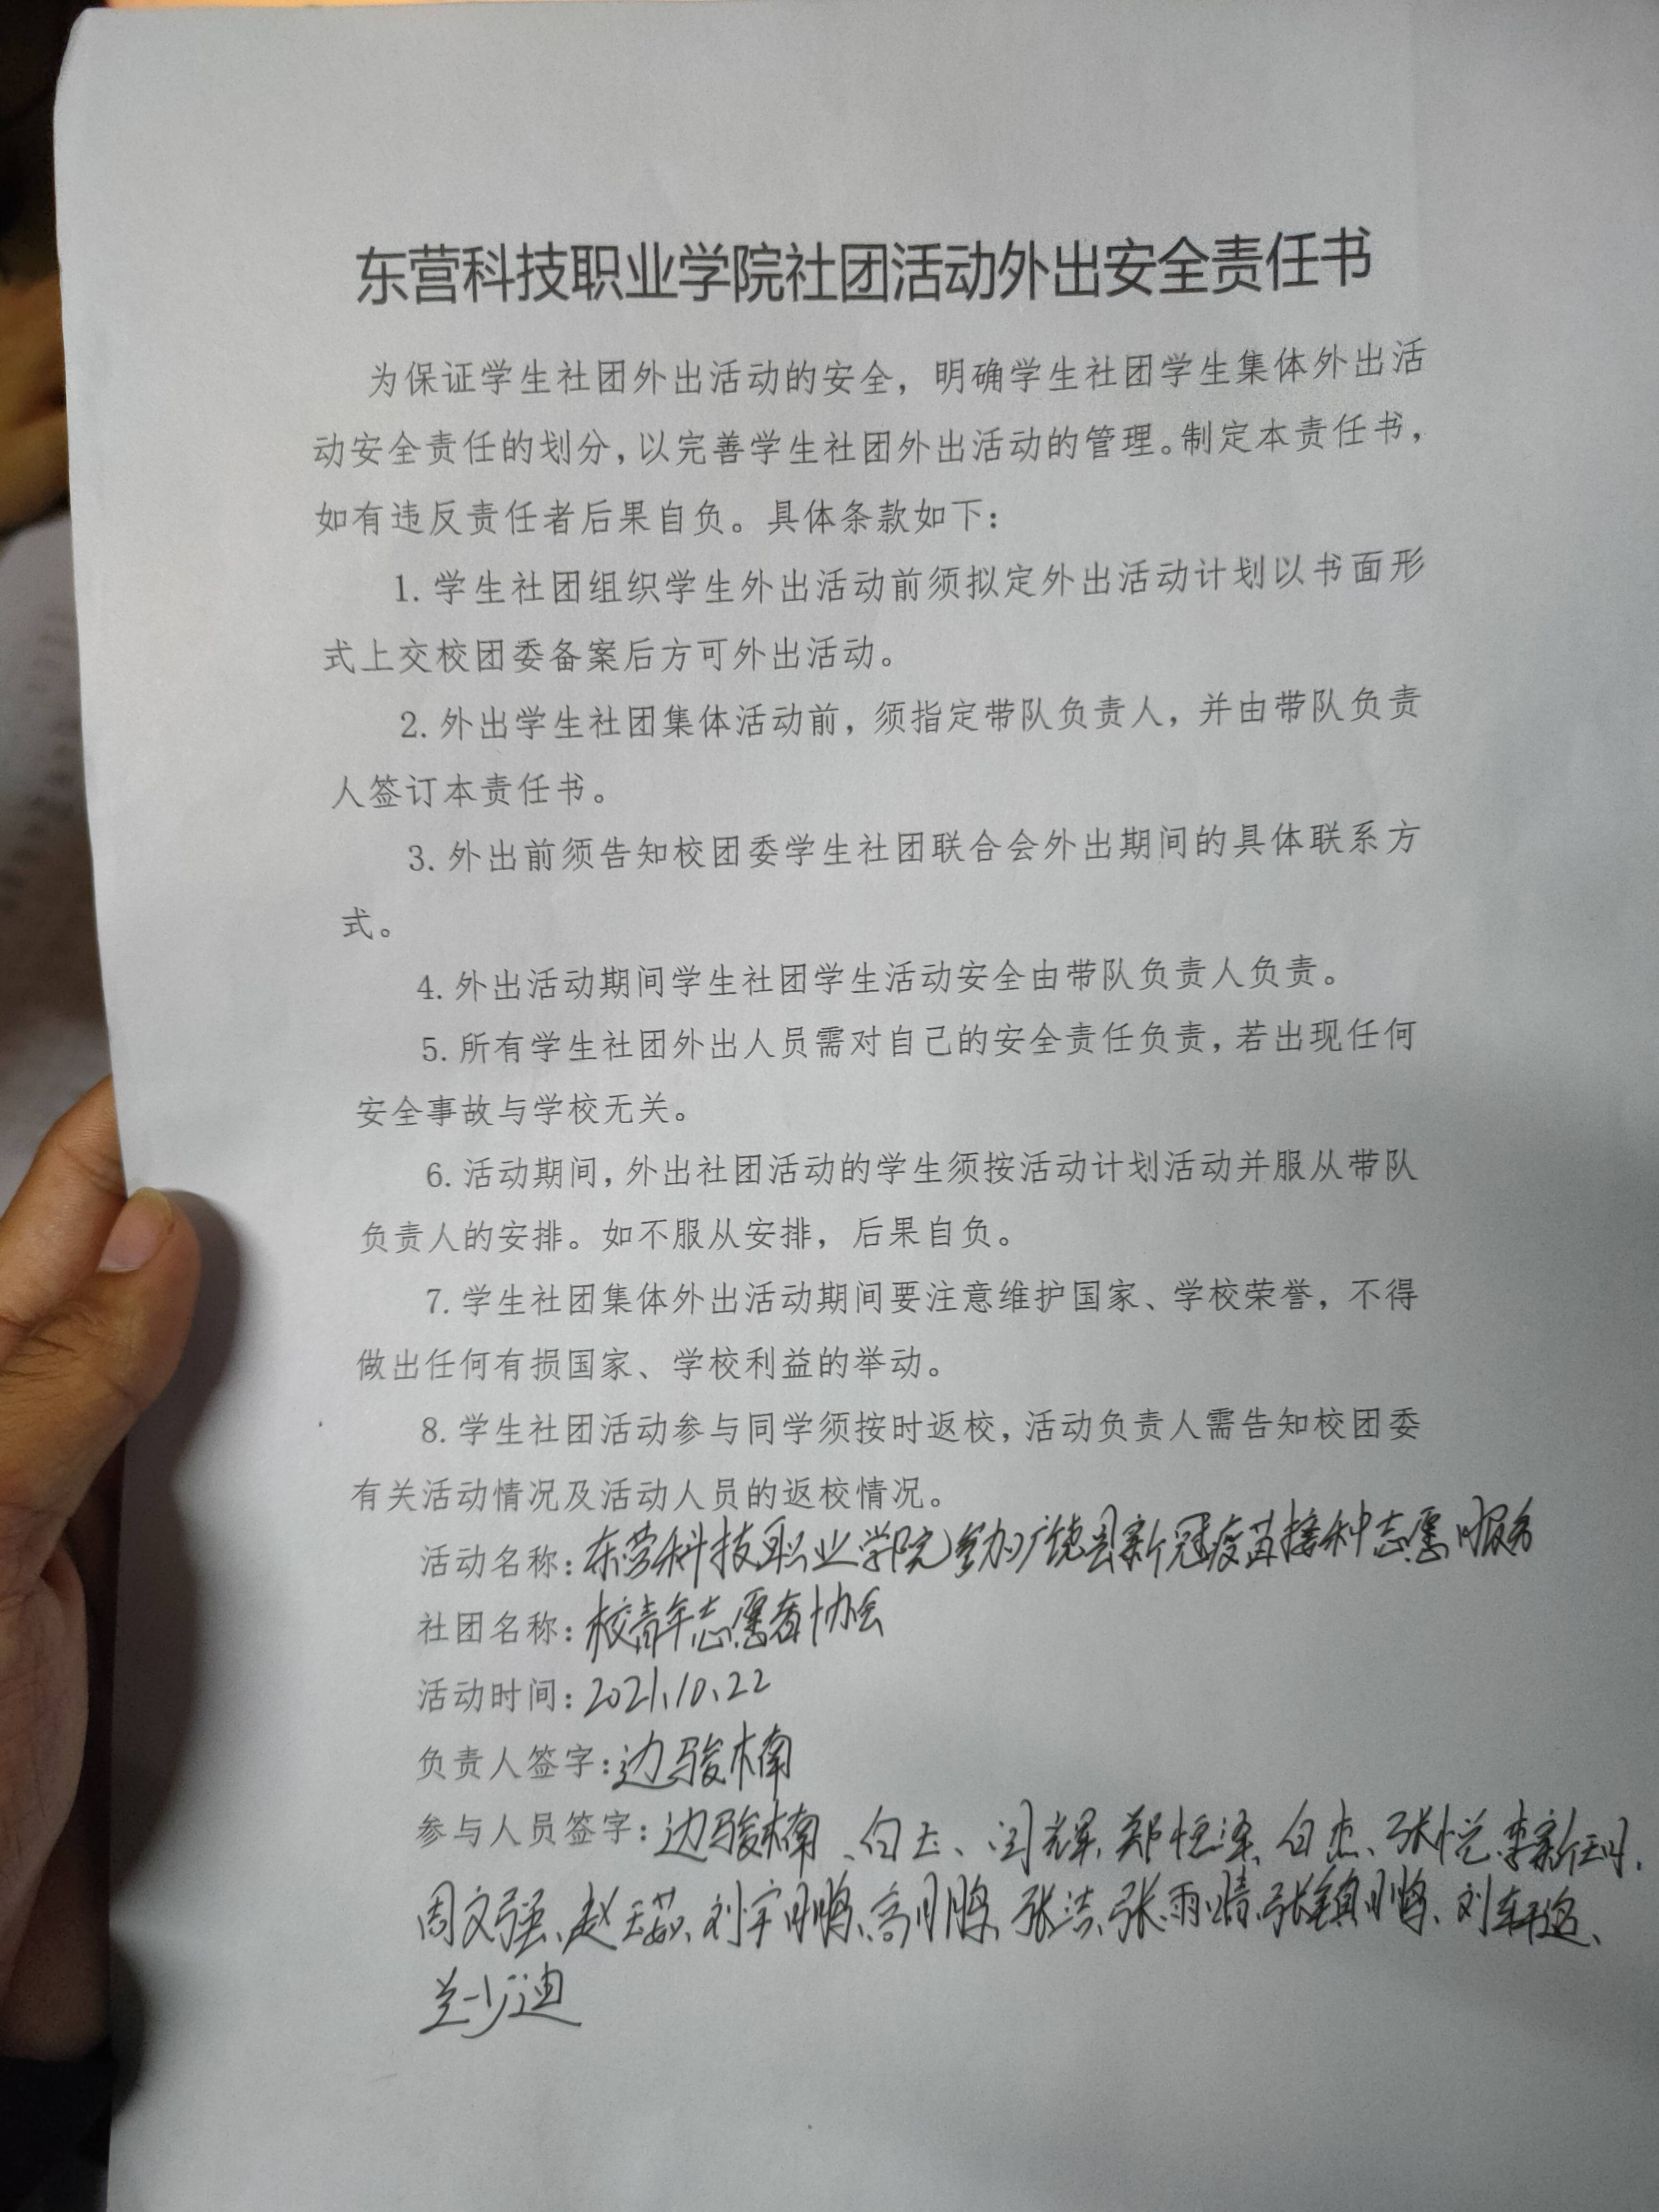 东营科技职业学院社团活动外出安全责任书
为保证学生社团外出活动的安全，明确学生社团学生集体外出活
动安全责任的划分，以完善学生社团外出活动的管理。制定本责任书，
如有违反责任者后果自负。具体条款如下：
1. 学生社团组织学生外出活动前须拟定外出活动计划以书面形
式上交校团委备案后方可外出活动。
2. 外出学生社团集体活动前，须指定带队负责人，并由带队负责
人签订本责任书。
3. 外出前须告知校团委学生社团联合会外出期间的具体联系方
式。
4. 外出活动期间学生社团学生活动安全由带队负责人负责。
5. 所有学生社团外出人员需对自己的安全责任负责，若出现任何
安全事故与学校无关。
6. 活动期间，外出社团活动的学生须按活动计划活动并服从带队
负责人的安排。如不服从安排，后果自负。
7. 学生社团集体外出活动期间要注意维护国家、学校荣誉，不得
做出任何有损国家、学校利益的举动。
8. 学生社团活动参与同学须按时返校，活动负责人需告知校团委
有关活动情况及活动人员的返校情况。
活动名称：东营科技职业学院参加广饶县新冠疫苗接种志愿服务
社团名称：校青年志愿者协会
活动时间：2021.10.22
负责人签字：边骏楠
参与人员签字：边骏楠、白玉、闫辉、郑恒泽、白杰、张悦、李新
周文强、赵天茹、刘宇鹏、高鹏、张洁、张雨晴、张镇鹏、刘
兰少迪